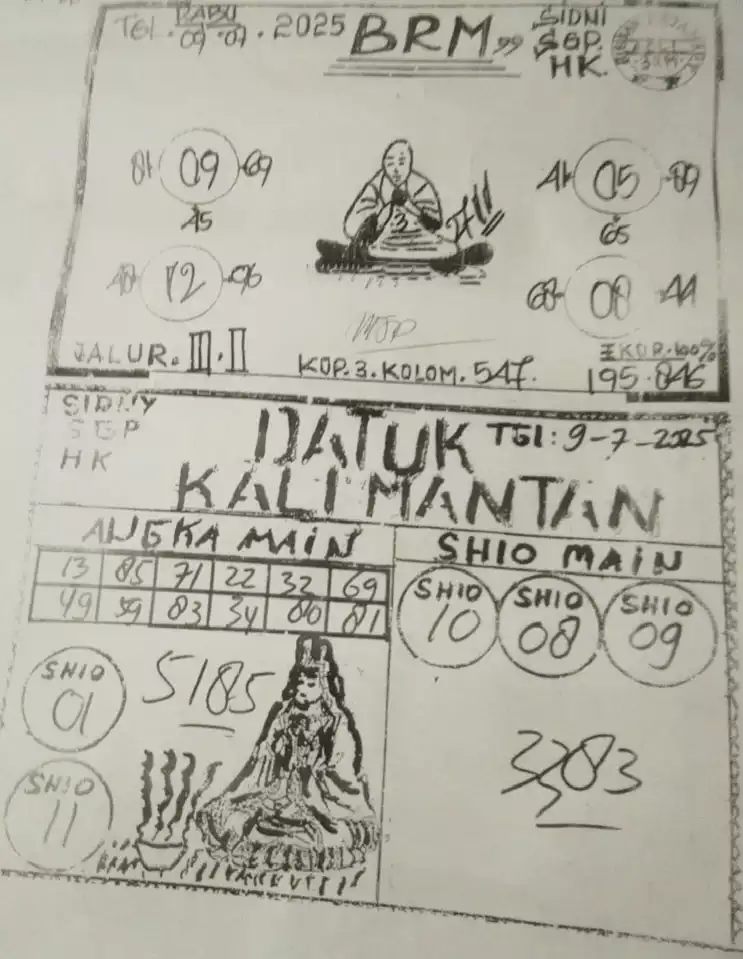 RABU
TGl. 09.07.2025 BRM"
SIDNI
SGP.
HK.
09 69
05 89
45
65
12 96
68 08 44
3
JALUR. III.II
KOP.3.KOLOM.547.
EKOR.100%
195.846
SIDNY
SGP
HK
DATUK
TGl:9-7-2025
KALIMANTAN
ANGKA MAIN
SHIO MAIN
13 85 71 22 32 69
49 39 83 34 80 81
SHIO 10
SHIO 08
SHIO 09
SHIO 01
5185
SHIO 11